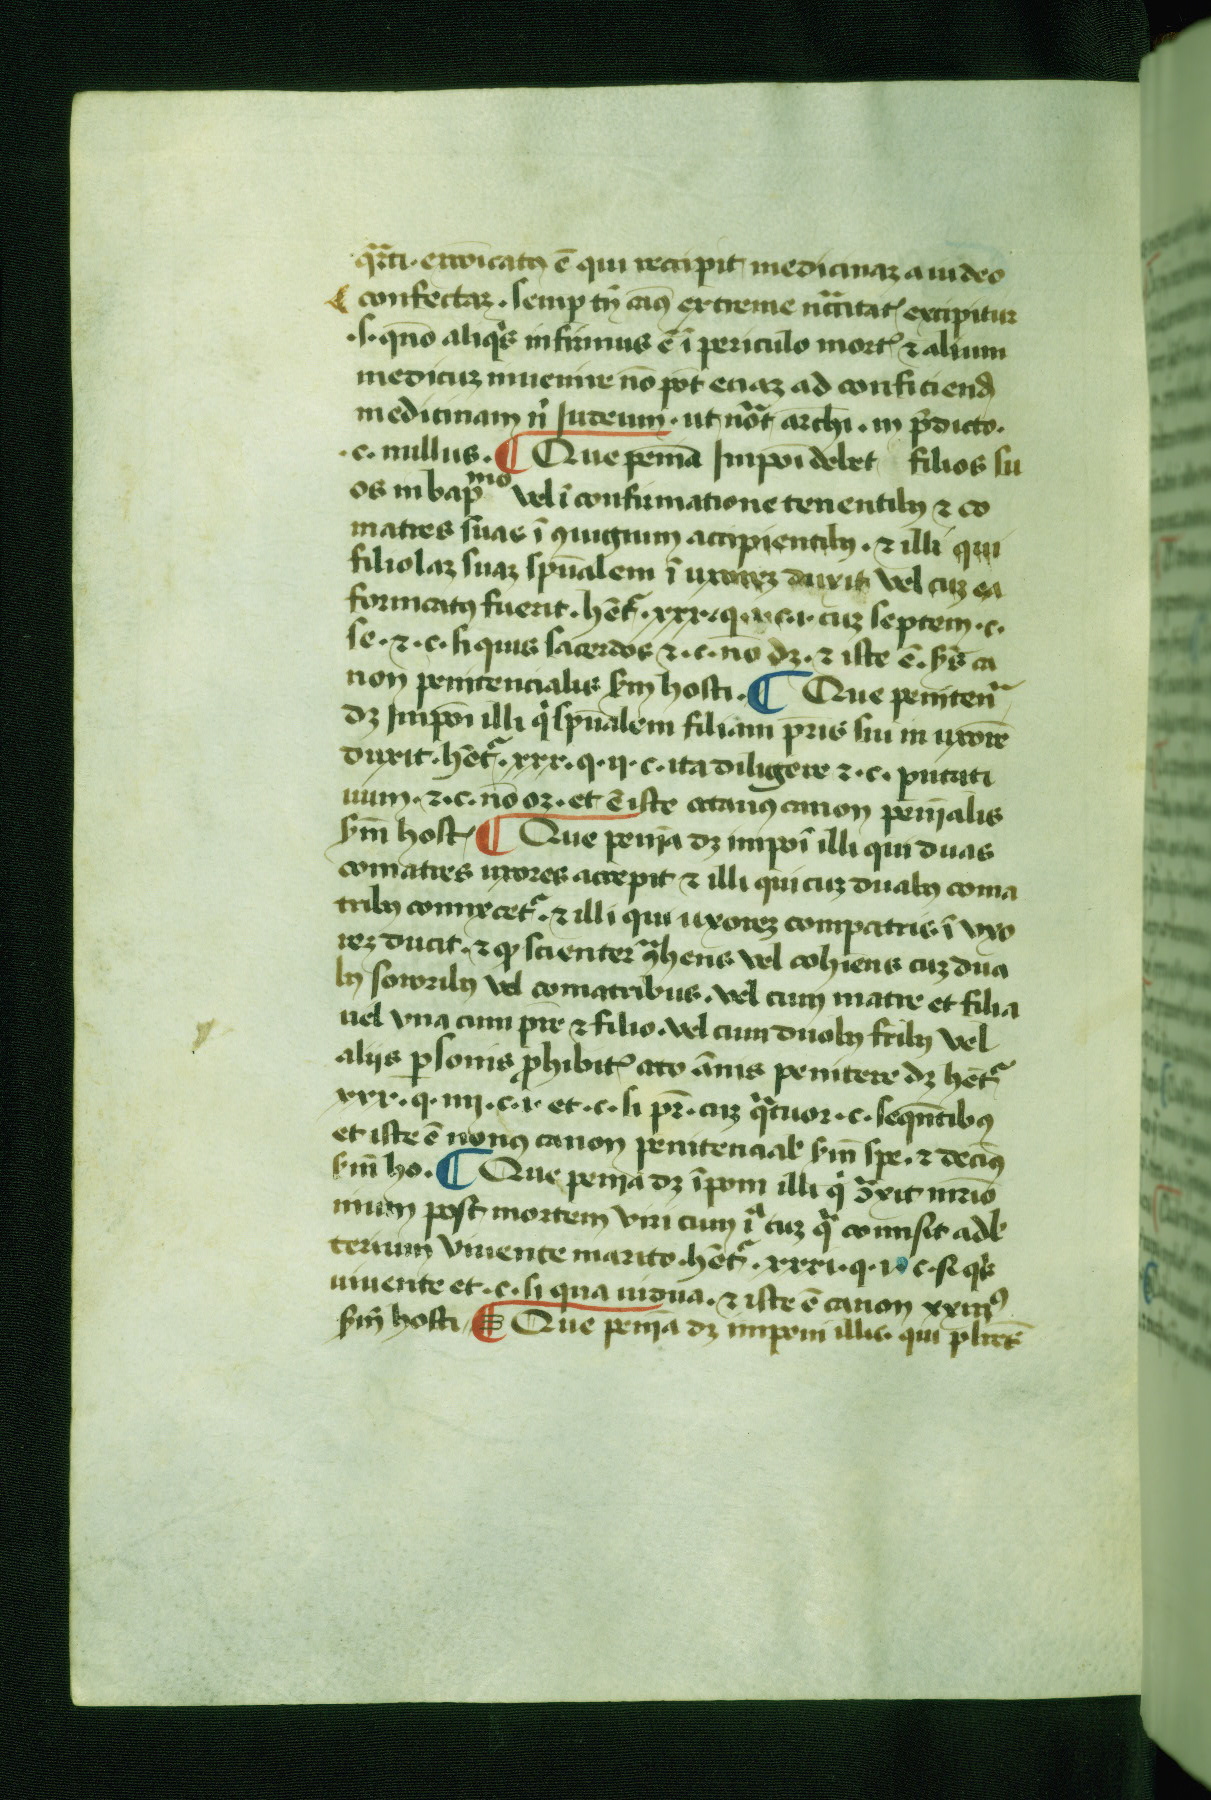 q̃rti · exõicatꝰ ē qui reccipit medicinaꝫ a iudeo
confectaꝫ . semp tñ caũs extreme nc̃citatꝭ excipitur
· s · qñdo aliq̇s infirmus ē ī periculo mortꝭ ⁊ alium
medicuꝫ inuenire nõ põt eciaꝫ ad conficiend
medicinam nͥ Iudeum · ut nõt archi . in p̃dicto ·
· c · nullus . ¶ Que penĩa Imponĩ debet filios su
os in bapᵐᵒ vel ĩ confirmatione tenentibꝫ ⁊ co
matres suas ĩ ꝯiugium accipientibꝫ . ⁊ illi qui
filiolaꝫ suaꝫ spũalem ĩ uxoreꝫ duxit vel cuꝫ ea
fornicatꝰ fuerit . hẽtᷓ . xxx · q · · c · i · cuꝫ septem · c ·
se · ⁊ · c · si quis sacerdos ⁊ · c · nõ dꝫ · ⁊ iste ē · ca
non penitencialis ẜm hosti . ¶ Que penitenᷓ
dꝫ Imponĩ illi qͥ spũalem filiam p̃ris sui in uxorẽ
duxit · hẽtᷓ · xxx · q · ii · c · ita diligere ⁊ · c · putati
uum · ⁊ · c · nõ oꝫ · et ē iste octauꝰ canon penĩalis
ẜm hostꝭ ¶ Que penĩa dꝫ imponĩ illi qui duas
comatres uxores accepit ⁊ illi qui cuꝫ duabꝫ coma
tribꝫ comiscetᷓ · ⁊ illi qui uxoreꝫ compatris ĩ vxo
reꝫ ducit · ⁊ ꝙ scienter ꝯᷓhens vel cohiens cuꝫ dua
bꝫ sororibꝫ vel comatribus . vel cum matre et filia
uel vna cum p̃re ⁊ filio . vel cum duobꝫ fr̃ibꝫ vel
aliis ꝑsonis ꝓhibitꝭ octo ãnis penitere dꝫ hẽtᷓ
xxx · q · iiii · c · i · et · c · si pr̃ · cuꝫ qᷓtuor · c · seqñtibꝰ
et iste ē nonꝰ canon penitencial ẜm spe · ⁊ decĩꝰ
ẜm ho . ¶ Que penĩa dꝫ ĩponi illi qͥ ꝯᷓxit mr̃io
nium post mortem viri cum iᷓ cuꝫ qᷓ comisit adl
terium viuente marito · hẽtᷓ · xxxi · q · i · c · si qͥs
uiuente et · c · si qua uidua · ⁊ iste ē canon xxiiiꝰ
ẜm hosti ¶ Que penĩa dꝫ imponi illis qui pl̃ires